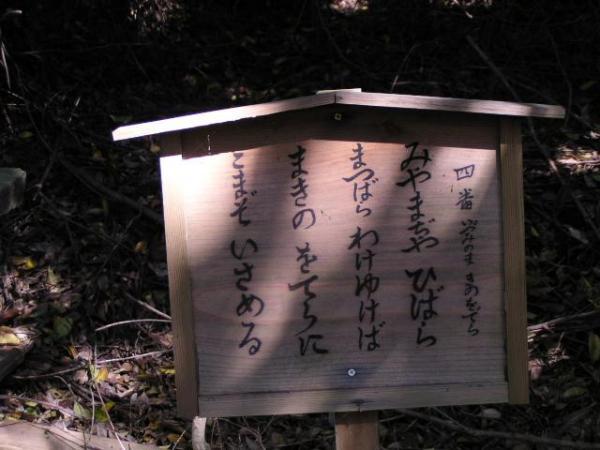 四番 いづみのま まきのをでら
みやまぢや ひばら
まつばら わけゆけば
まきの をてらに
こまぞ いさめる